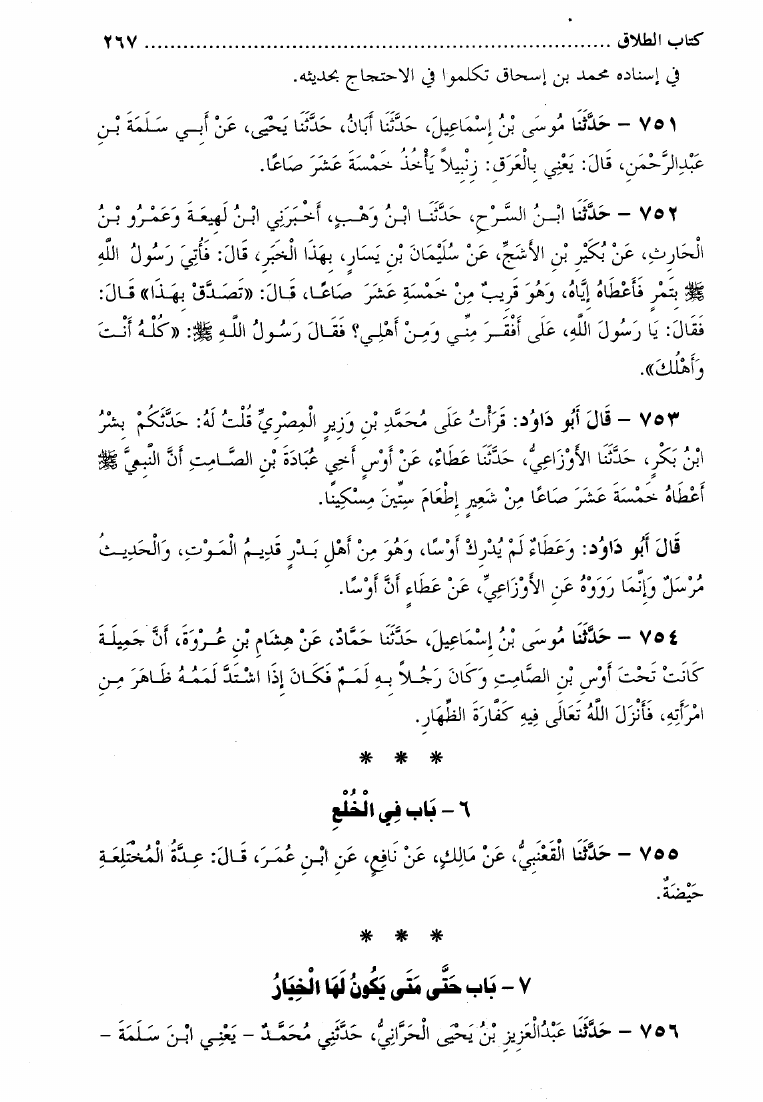 كتاب الطلاق ........................................................................ ٢٦٧
في إسناده محمد بن إسحاق تكلموا في الاحتجاج بحديثه.
٧٥١ – حَدَّثَنَا مُوسَى بْنُ إِسْمَاعِيلَ، حَدَّثَنَا أَبَانُ، حَدَّثَنَا يَحْيَى، عَنْ أَبِي سَلَمَةَ بْنِ
عَبْدِالرَّحْمَنِ، قَالَ: يَعْنِي بِالْعَرَقِ: زِنْبِيلاً يَأْخُذُ خَمْسَةَ عَشَرَ صَاعًا.
٧٥٢ – حَدَّثَنَا ابْنُ السَّرْحِ، حَدَّثَنَا ابْنُ وَهْبٍ، أَخْبَرَنِي ابْنُ لَهِيعَةَ وَعَمْرُو بْنُ
الْحَارِثِ، عَنْ بُكَيْرِ بْنِ الأَشَجِّ، عَنْ سُلَيْمَانَ بْنِ يَسَارٍ، بِهَذَا الْخَبَرِ، قَالَ: فَأُتِيَ رَسُولُ اللَّهِ
ﷺ بِتَمْرٍ فَأَعْطَاهُ إِيَّاهُ، وَهُوَ قَرِيبٌ مِنْ خَمْسَةِ عَشَرَ صَاعًا، قَالَ: «تَصَدَّقْ بِهَذَا» قَالَ:
فَقَالَ: يَا رَسُولَ اللَّهِ، عَلَى أَفْقَرَ مِنِّي وَمِنْ أَهْلِي؟ فَقَالَ رَسُولُ اللَّهِ ﷺ: «كُلْهُ أَنْتَ
وَأَهْلُكَ».
٧٥٣ – قَالَ أَبُو دَاوُد: قَرَأْتُ عَلَى مُحَمَّدِ بْنِ وَزِيرٍ الْمِصْرِيِّ قُلْتُ لَهُ: حَدَّثَكُمْ بِشْرُ
ابْنُ بَكْرٍ، حَدَّثَنَا الأَوْزَاعِيُّ، حَدَّثَنَا عَطَاءٌ، عَنْ أَوْسٍ أَخِي عُبَادَةَ بْنِ الصَّامِتِ أَنَّ النَّبِيَّ ﷺ
أَعْطَاهُ خَمْسَةَ عَشَرَ صَاعًا مِنْ شَعِيرٍ إِطْعَامَ سِتِّينَ مِسْكِينًا.
قَالَ أَبُو دَاوُد: وَعَطَاءٌ لَمْ يُدْرِكْ أَوْسًا، وَهُوَ مِنْ أَهْلِ بَدْرٍ قَدِيمُ الْمَوْتِ، وَالْحَدِيثُ
مُرْسَلٌ وَإِنَّمَا رَوَوْهُ عَنِ الأَوْزَاعِيِّ، عَنْ عَطَاءٍ أَنَّ أَوْسًا.
٧٥٤ – حَدَّثَنَا مُوسَى بْنُ إِسْمَاعِيلَ، حَدَّثَنَا حَمَّادٌ، عَنْ هِشَامِ بْنِ عُرْوَةَ، أَنَّ جَمِيلَةَ
كَانَتْ تَحْتَ أَوْسِ بْنِ الصَّامِتِ وَكَانَ رَجُلاً بِهِ لَمَمٌ فَكَانَ إِذَا اشْتَدَّ لَمَمُهُ ظَاهَرَ مِنِ
امْرَأَتِهِ، فَأَنْزَلَ اللَّهُ تَعَالَى فِيهِ كَفَّارَةَ الظِّهَارِ.
* * *
٦ - بَاب فِي الْخُلْعِ
٧٥٥ – حَدَّثَنَا الْقَعْنَبِيُّ، عَنْ مَالِكٍ، عَنْ نَافِعٍ، عَنِ ابْنِ عُمَرَ، قَالَ: عِدَّةُ الْمُخْتَلِعَةِ
حَيْضَةٌ.
* * *
٧ - بَاب حَتَّى مَتَى يَكُونُ لَهَا الْخِيَارُ
٧٥٦ – حَدَّثَنَا عَبْدُالْعَزِيزِ بْنُ يَحْيَى الْحَرَّانِيُّ، حَدَّثَنِي مُحَمَّدٌ - يَعْنِي ابْنَ سَلَمَةَ -